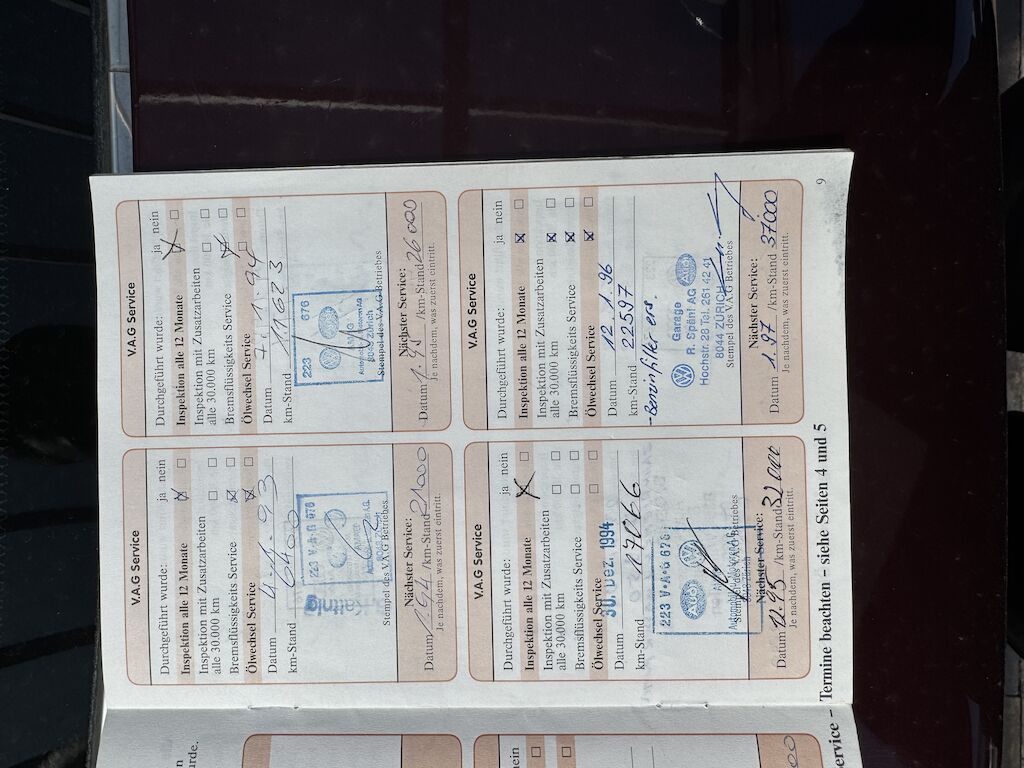 V.A.G Service
Durchgeführt wurde: ja nein
Inspektion alle 12 Monate
Inspektion mit Zusatzarbeiten
alle 30.000 km
Bremsflüssigkeits Service
Ölwechsel Service
Datum 93
km-Stand 6400
223 V·A·G 676
Stempel des V.A.G Betriebes
Nächster Service:
Datum 1.94 /km-Stand 21000
Je nachdem, was zuerst eintritt.
V.A.G Service
Durchgeführt wurde: ja nein
Inspektion alle 12 Monate
Inspektion mit Zusatzarbeiten
alle 30.000 km
Bremsflüssigkeits Service
Ölwechsel Service
Datum 7. 1. 94
km-Stand 11623
223 676
8040 Zürich
Stempel des V.A.G Betriebes
Nächster Service:
Datum 1.95 /km-Stand 26000
Je nachdem, was zuerst eintritt.
V.A.G Service
Durchgeführt wurde: ja nein
Inspektion alle 12 Monate
Inspektion mit Zusatzarbeiten
alle 30.000 km
Bremsflüssigkeits Service
Ölwechsel Service
Datum 30. Dez. 1994
km-Stand 17066
223 V·A·G 676
Stempel des V.A.G Betriebes
Nächster Service:
Datum 12.95 /km-Stand 32000
Je nachdem, was zuerst eintritt.
V.A.G Service
Durchgeführt wurde: ja nein
Inspektion alle 12 Monate
Inspektion mit Zusatzarbeiten
alle 30.000 km
Bremsflüssigkeits Service
Ölwechsel Service
Datum 12. 1. 96
km-Stand 22597
- Benzinfilter ers.
Garage
R. Späni AG
Hochstr. 28 Tel. 261 42 41
8044 ZÜRICH
Stempel des V.A.G Betriebes
Nächster Service:
Datum 1.97 /km-Stand 37000
Je nachdem, was zuerst eintritt.
ervice – Termine beachten – siehe Seiten 4 und 5
9
urde.
nein